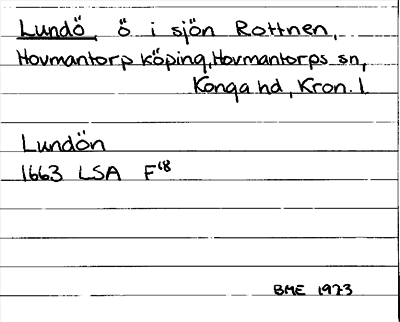 Lundö ö i sjön Rottnen,
Hovmantorp köping, Hovmantorps sn,
Konga hd, Kron. l
Lundön
1663 LSA F 18
BME 1973